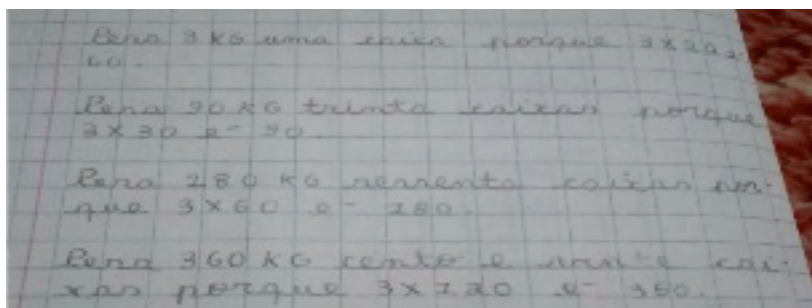 Pera 3 KG uma caixa porque 3x20 é
60.
Pera 90 KG trinta caixas porque
3x30 é 90.
Pera 180 KG sessenta caixas por-
que 3x60 é 180.
Pera 360 KG cento e vinte cai-
xas porque 3x120 é 360.